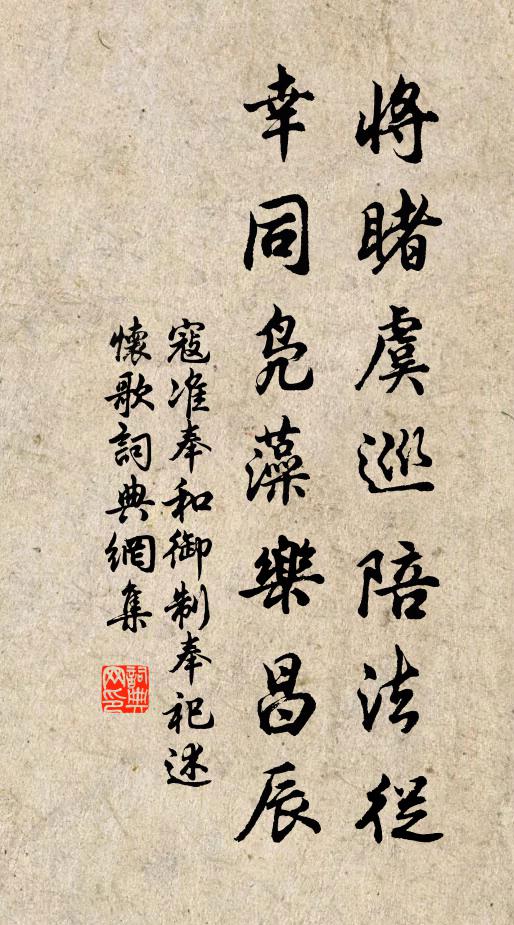 將睹虞巡陪法從
幸同凫藻樂昌辰
寇准奉和御制奉祀述
懷歌詞典網集
詞典
网印